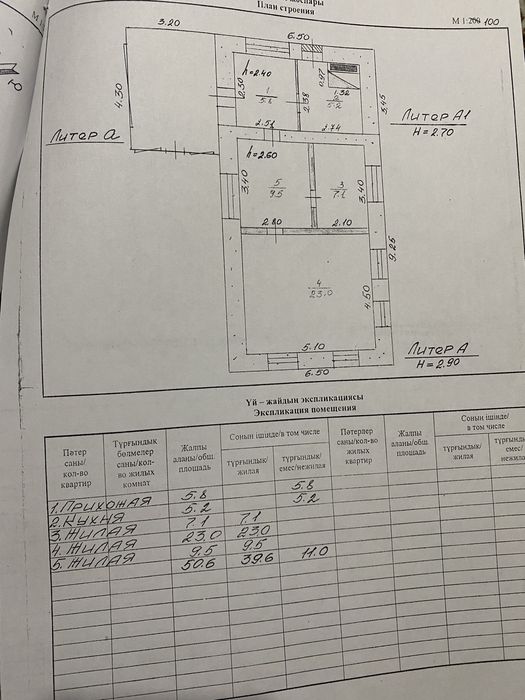 План строения
М 1:200 100
3.20
6.50
4.30
h=2.40
2.30
1
5.8
2.38
0.97
1.32
2
5.2
3.45
Литер А1
H=2.70
2.51
2.74
Литер а
h=2.60
3.40
5
9.5
3
7.1
3.40
2.80
2.10
9.25
4
23.0
4.50
5.10
6.50
Литер А
H=2.90
Үй – жайдың экспликациясы
Экспликация помещения
Пәтер саны/ кол-во квартир
Тұрғындық бөлмелер саны/кол-во жилых комнат
Жалпы аланы/общ. площадь
Сонын ішінде/в том числе
тұрғындық/ жилая
тұрғындық емес/нежилая
Пәтерлер саны/кол-во жилых квартир
Жалпы аланы/общ. площадь
Сонын ішінде/ в том числе
тұрғындық/ жилая
1. Прихожая 5.8 5.8
2. Кухня 5.2 5.2
3. Жилая 7.1 7.1
4. Жилая 23.0 23.0
5. Жилая 9.5 9.5
50.6 39.6 11.0